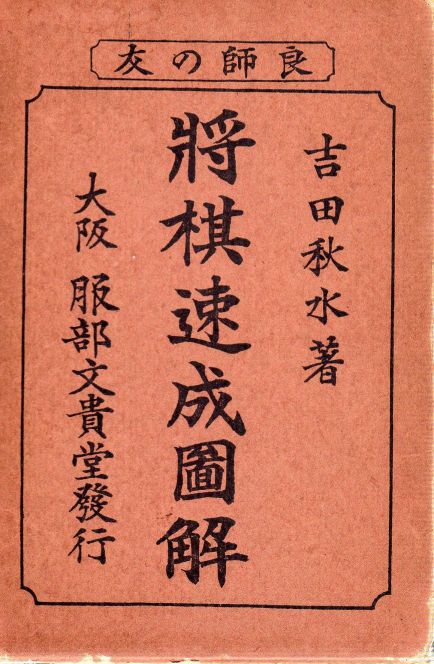 良師の友
吉田秋水著
將棋速成圖解
大阪 服部文貴堂發行